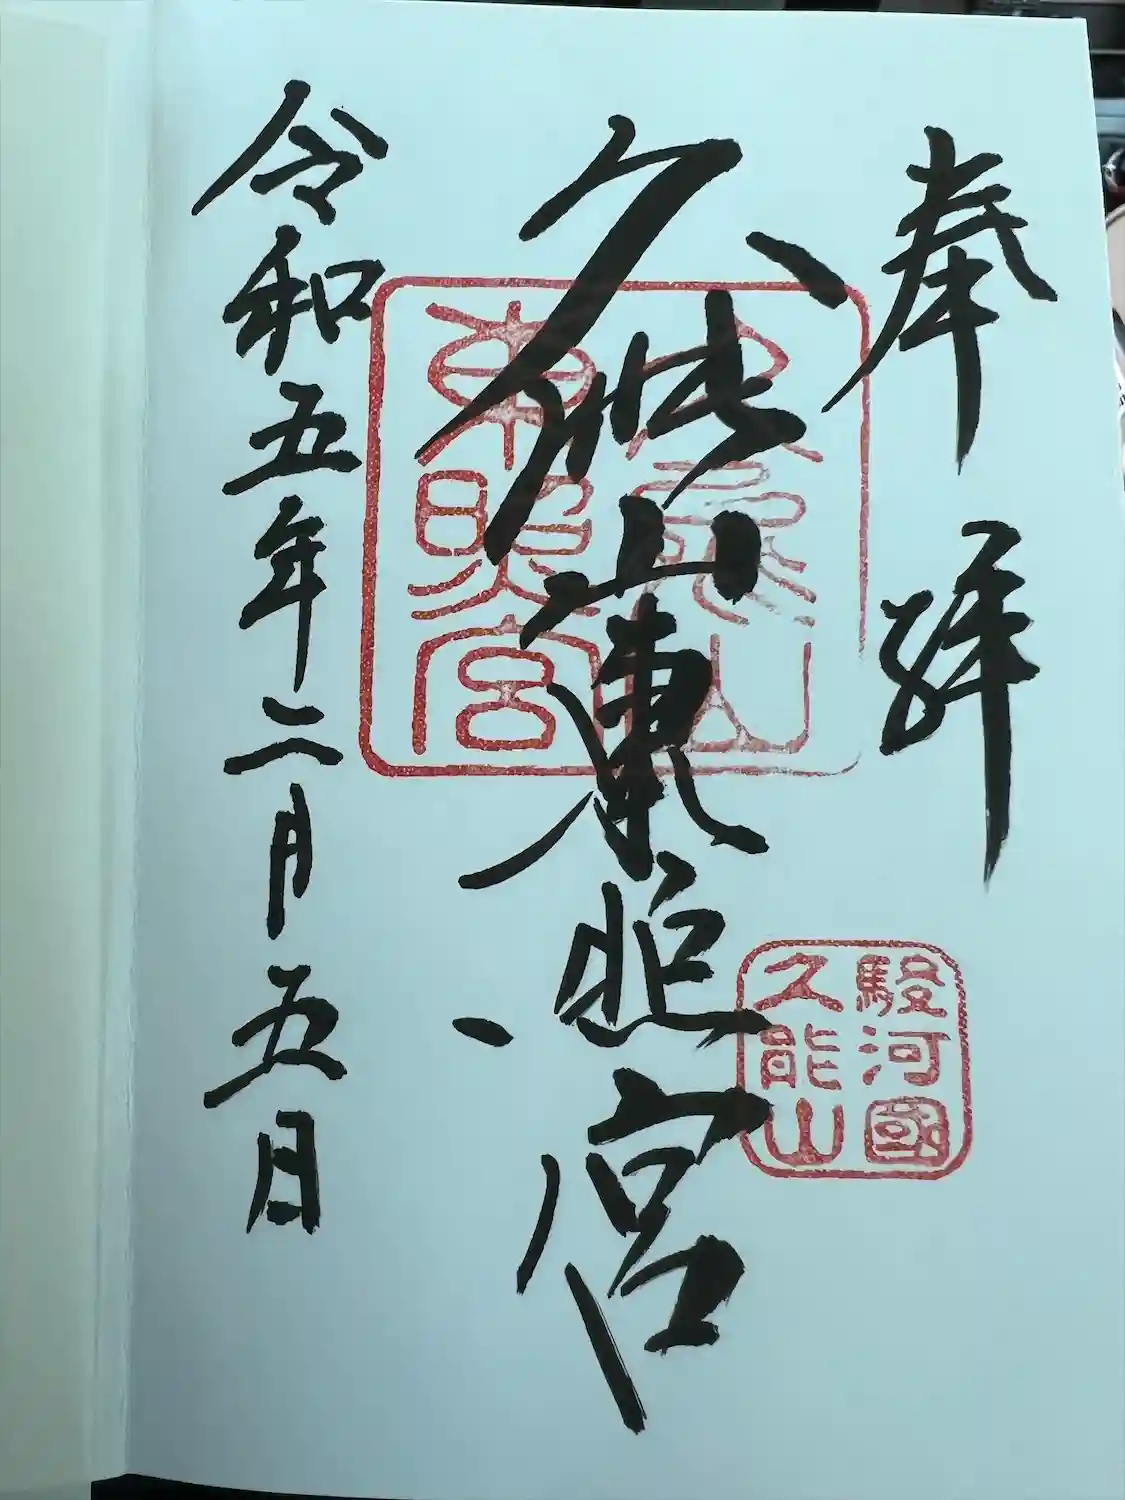 奉拝
久能山東照宮
令和五年二月五日
久能山
東照宮
駿河國
久能山